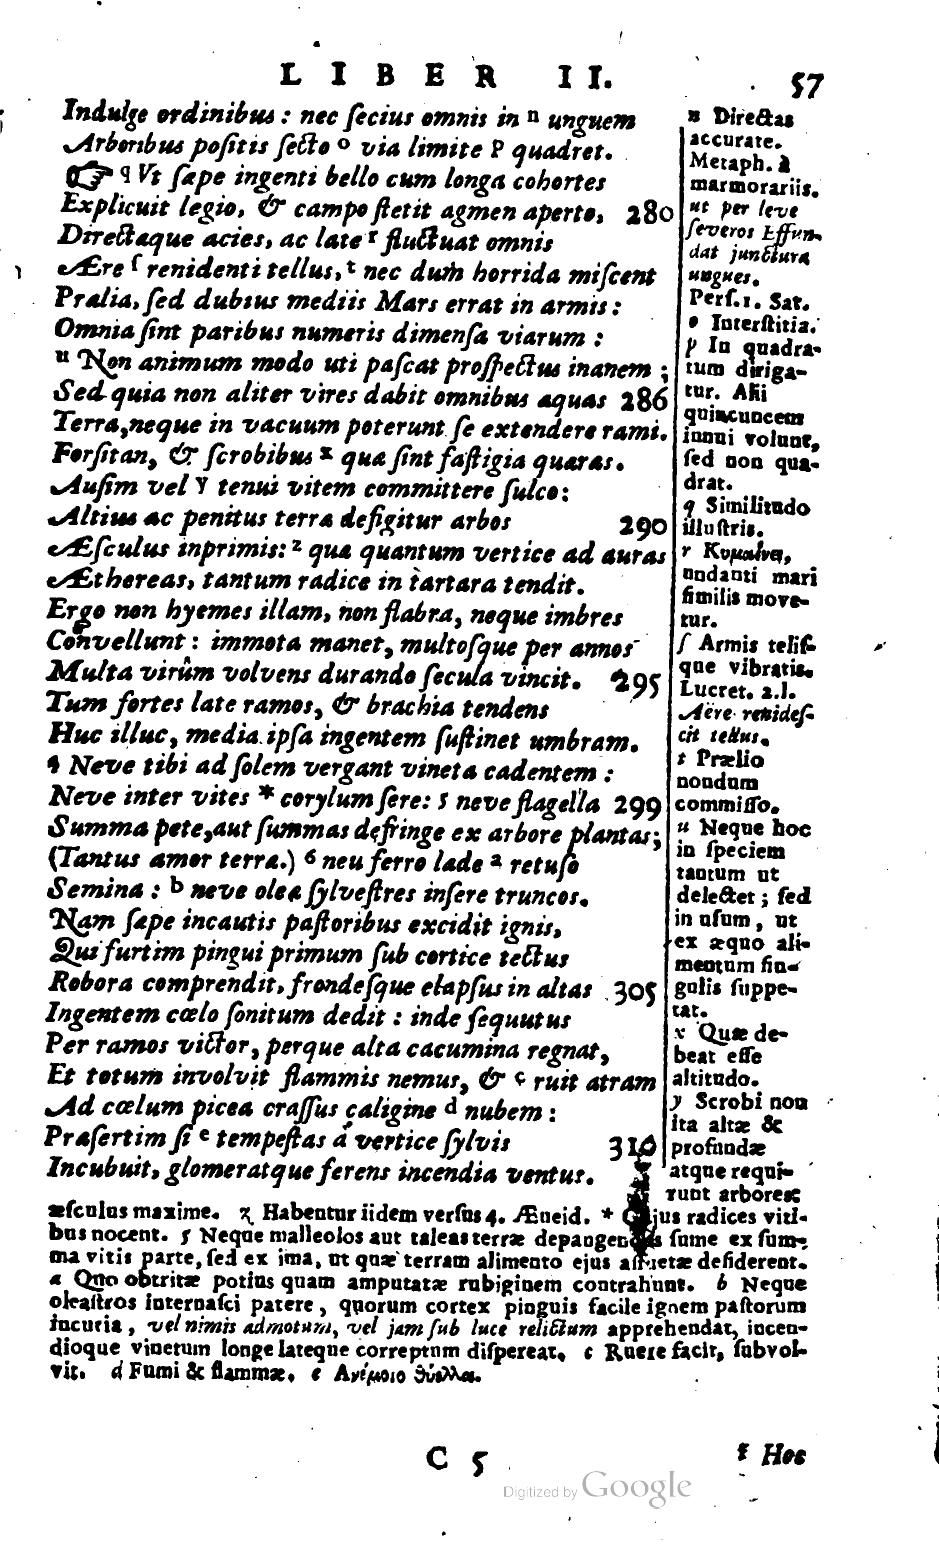 LIBER II. 57
Indulge ordinibus : nec ſecius omnis in ⁿ unguem
Arboribus poſitis ſecto ᵒ via limite ᵖ quadret.
☞ ꟴ Ut ſæpe ingenti bello cum longa cohortes
Explicuit legio, & campo ſtetit agmen aperto, 280
Directæque acies, ac late ʳ fluctuat omnis
Ære ᶴ renidenti tellus, ᵗ nec dum horrida miſcent
Prælia, ſed dubius mediis Mars errat in armis :
Omnia ſint paribus numeris dimenſa viarum :
ᵘ Non animum modo uti paſcat proſpectus inanem ;
Sed quia non aliter vires dabit omnibus æquas 286
Terra, neque in vacuum poterunt ſe extendere rami.
Forſitan, & ſcrobibus ˣ quæ ſint faſtigia quæras.
Auſim vel ʸ tenui vitem committere ſulco :
Altius ac penitus terra defigitur arbos 290
Æſculus inprimis : ᶻ quæ quantum vertice ad auras
Æthereas, tantum radice in tartara tendit.
Ergo non hyemes illam, non flabra, neque imbres
Convellunt : immota manet, multoſque per annos
Multa virûm volvens durando ſecula vincit. 295
Tum fortes late ramos, & brachia tendens
Huc illuc, media ipſa ingentem ſuſtinet umbram.
¶ Neve tibi ad ſolem vergant vineta cadentem :
Neve inter vites * corylum ſere : 5 neve flagella 299
Summa pete, aut ſummas defringe ex arbore plantas;
(Tantus amor terræ.) 6 neu ferro læde ᵃ retuſo
Semina : ᵇ neve oleæ ſylveſtres inſere truncos.
Nam ſæpe incautis paſtoribus excidit ignis,
Qui furtim pingui primum ſub cortice tectus
Robora comprendit, frondeſque elapſus in altas 305
Ingentem cœlo ſonitum dedit : inde ſequutus
Per ramos victor, perque alta cacumina regnat,
Et totum involvit flammis nemus, & ᶜ ruit atram
Ad cœlum picea craſſus caligine ᵈ nubem :
Præſertim ſi ᵉ tempeſtas á vertice ſylvis 310
Incubuit, glomeratque ferens incendia ventus.
n Directas
accurate.
Metaph. à
marmorariis.
ut per leve
ſeveros Effun-
dat junctura
ungues.
Perſ. 1. Sat.
o Interſtitia.
p In quadra-
tum diriga-
tur. Alii
quincuncem
innui volunt,
ſed non qua-
drat.
q Similitudo
illuſtris.
r Κυμαίνει,
undanti mari
ſimilis move-
tur.
ſ Armis teliſ-
que vibratis.
Lucret. 2. l.
Aëre renideſ-
cit tellus.
t Prælio
nondum
commiſſo.
u Neque hoc
in ſpeciem
tantum ut
delectet ; ſed
in uſum, ut
ex æquo ali-
mentum ſin-
gulis ſuppe-
tat.
x Quæ de-
beat eſſe
altitudo.
y Scrobi non
ita altæ &
profundæ
atque requi-
runt arbores
æſculus maxime. z Habentur iidem verſus 4. Æneid. * Cujus radices viti-
bus nocent. 5 Neque malleolos aut taleas terræ depangendas ſume ex ſum-
ma vitis parte, ſed ex ima, ut quæ terram alimento ejus aſſuetæ deſiderent.
a Quo obtritæ potius quam amputatæ rubiginem contrahunt. b Neque
oleaſtros internaſci patere, quorum cortex pinguis facile ignem paſtorum
incuria, vel nimis admotum, vel jam ſub luce relictum apprehendat, incen-
dioque vinetum longe lateque correptum diſpereat. c Ruere facit, ſubvol-
vit. d Fumi & flammæ. e Ἀνέμοιο θύελλα.
C 5 f Hos
Digitized by Google